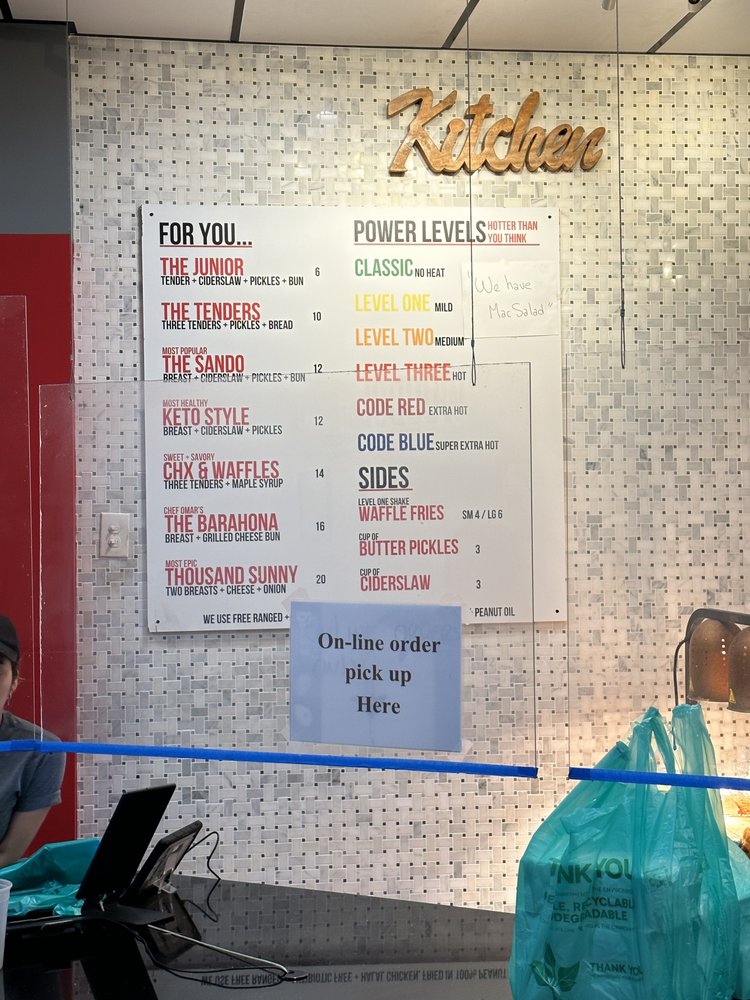 Kitchen
FOR YOU...
THE JUNIOR 6
TENDER + CIDERSLAW + PICKLES + BUN
THE TENDERS 10
THREE TENDERS + PICKLES + BREAD
MOST POPULAR
THE SANDO 12
BREAST + CIDERSLAW + PICKLES + BUN
MOST HEALTHY
KETO STYLE 12
BREAST + CIDERSLAW + PICKLES
SWEET + SAVORY
CHX & WAFFLES 14
THREE TENDERS + MAPLE SYRUP
CHEF OMAR'S
THE BARAHONA 16
BREAST + GRILLED CHEESE BUN
MOST EPIC
THOUSAND SUNNY 20
TWO BREASTS + CHEESE + ONION
POWER LEVELS HOTTER THAN
YOU THINK
CLASSIC NO HEAT
LEVEL ONE MILD
LEVEL TWO MEDIUM
LEVEL THREE HOT
CODE RED EXTRA HOT
CODE BLUE SUPER EXTRA HOT
"We have
Mac Salad"
SIDES
LEVEL ONE SHAKE
WAFFLE FRIES SM 4 / LG 6
CUP OF
BUTTER PICKLES 3
CUP OF
CIDERSLAW 3
WE USE FREE RANGED + PEANUT OIL
On-line order
pick up
Here
NK YOU
THE
RECYCLABLE
DEGRADABLE
THANK YOU
WE USE FREE RANGED + HALAL CHICKEN. FRIED IN 100% PEANUT